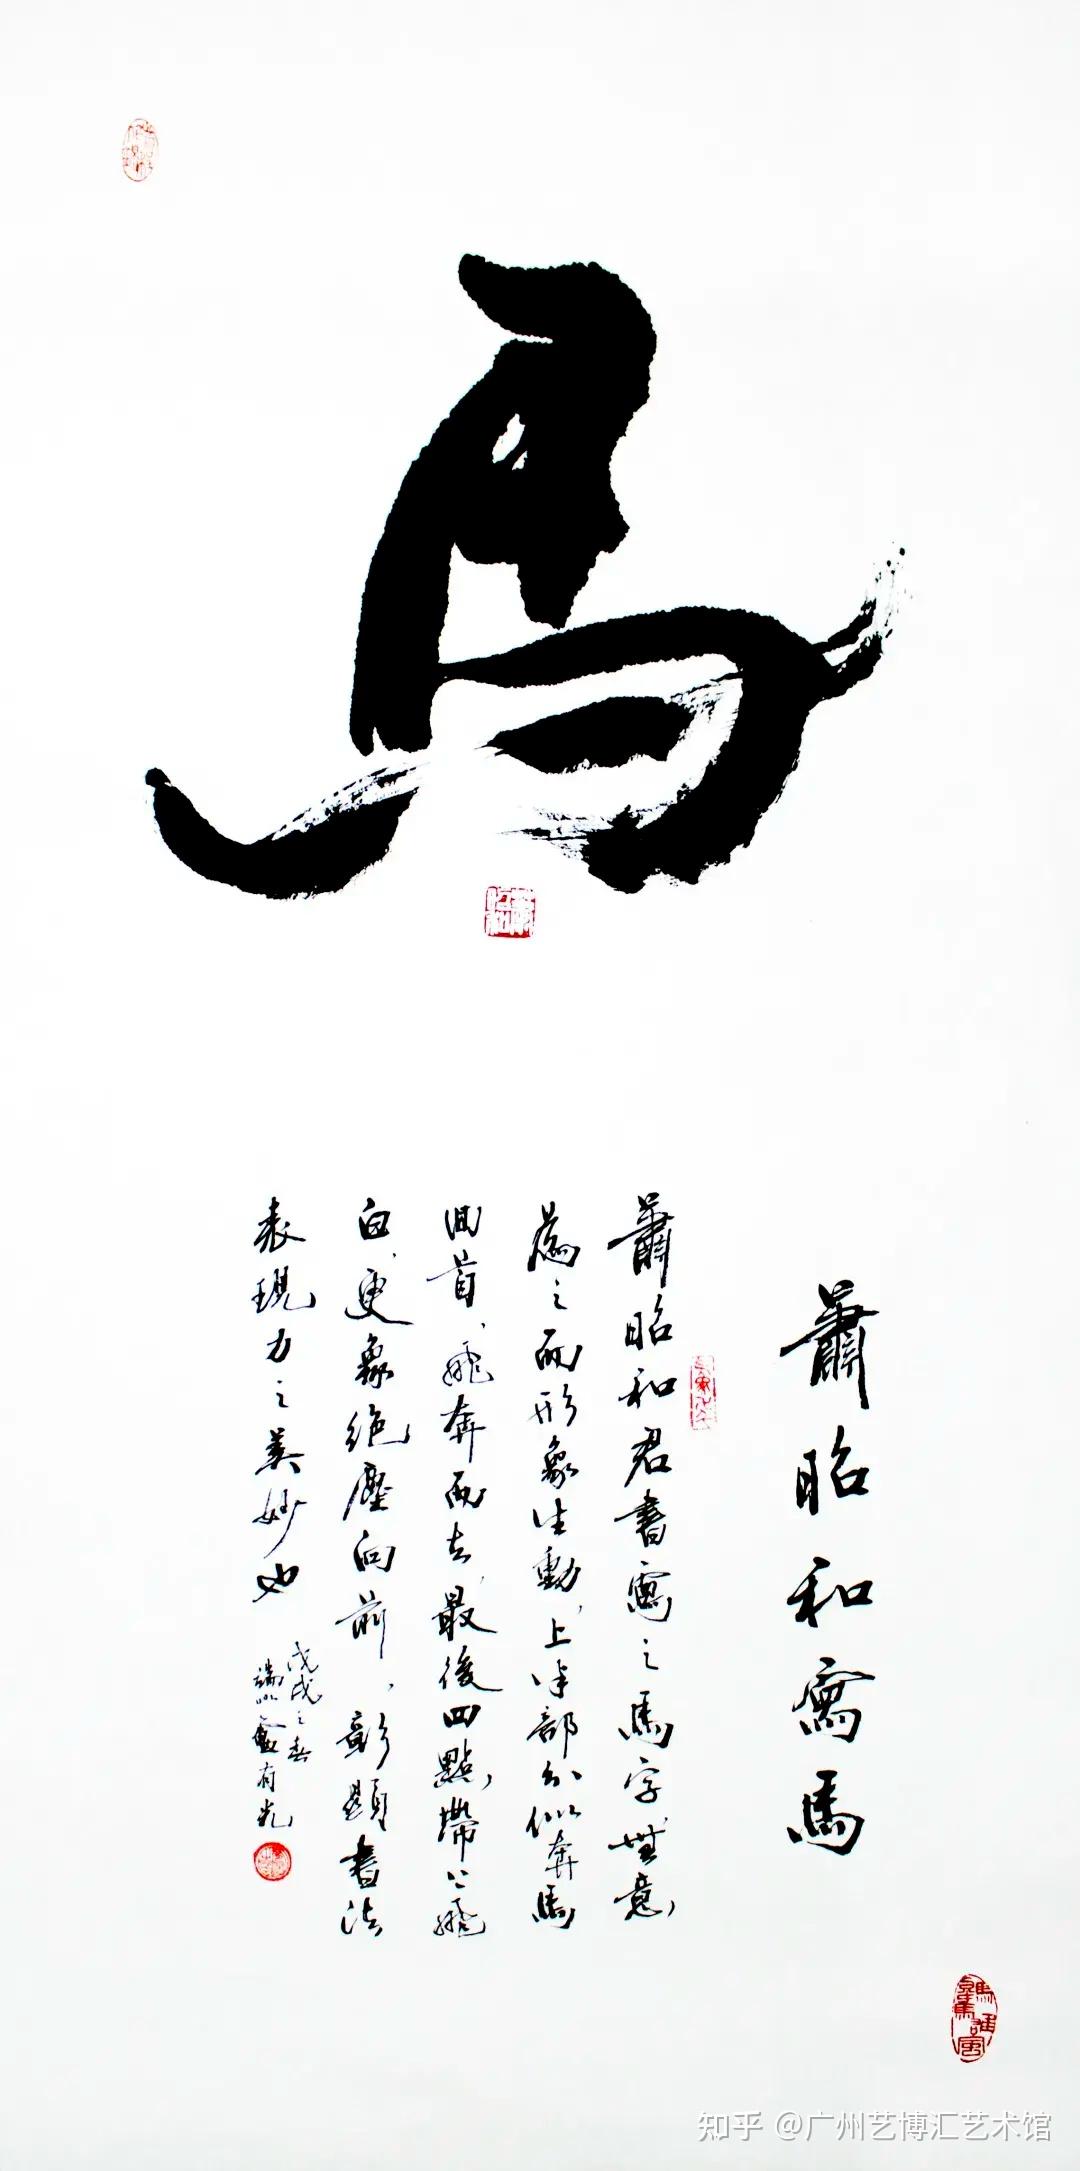 馬
蕭昭和寫馬
蕭昭和君書寫之馬字,無意,
為之而形象生動,上半部分似奔馬
回首,飛奔而去,最後四點,帶以飛
白,更象绝塵向前,彰顯書法
表現力之美妙也
戊戌之春
有光
知乎 @广州艺博汇艺术馆